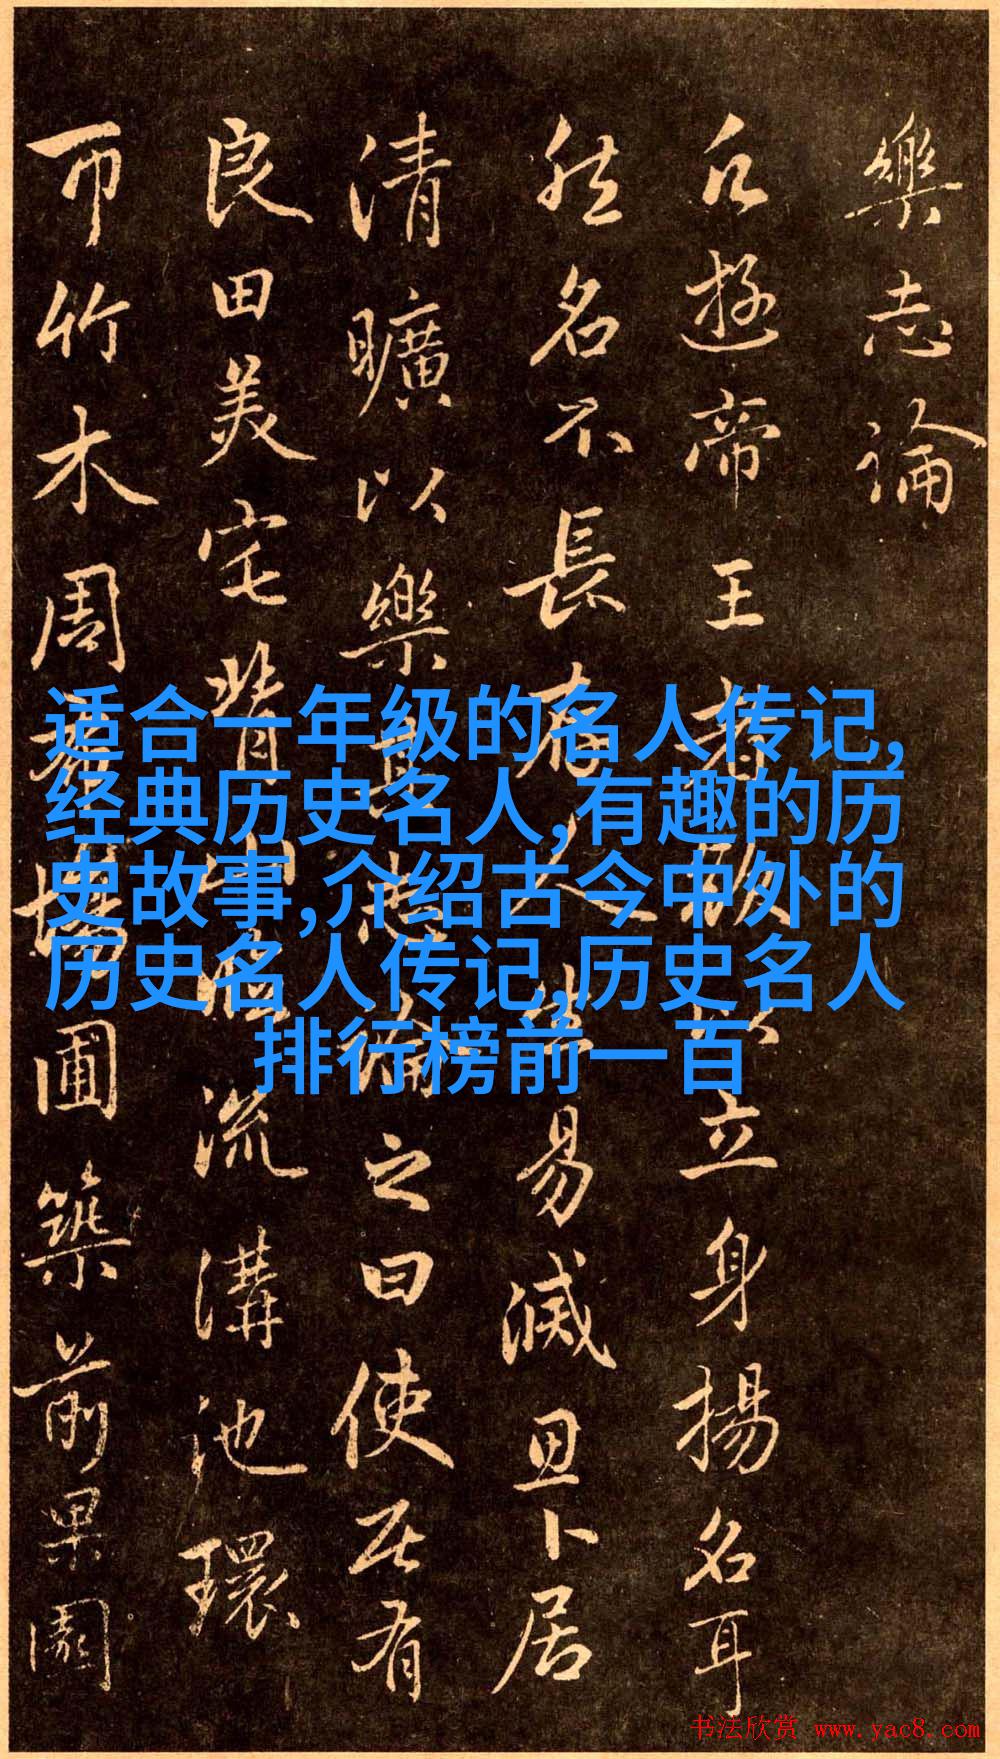 樂志論
凡遊帝王者欲以立身揚名耳
然名不長存人生易滅
卜居
清曠以樂其志論之曰使居有
良田美宅背山臨流溝池環
帀竹木周布場圃築前果園
适合一年级的名人传记,
经典历史名人,有趣的历
史故事,介绍古今中外的
历史名人传记,历史名人
排行榜前一百
书法欣赏 www.yac8.com